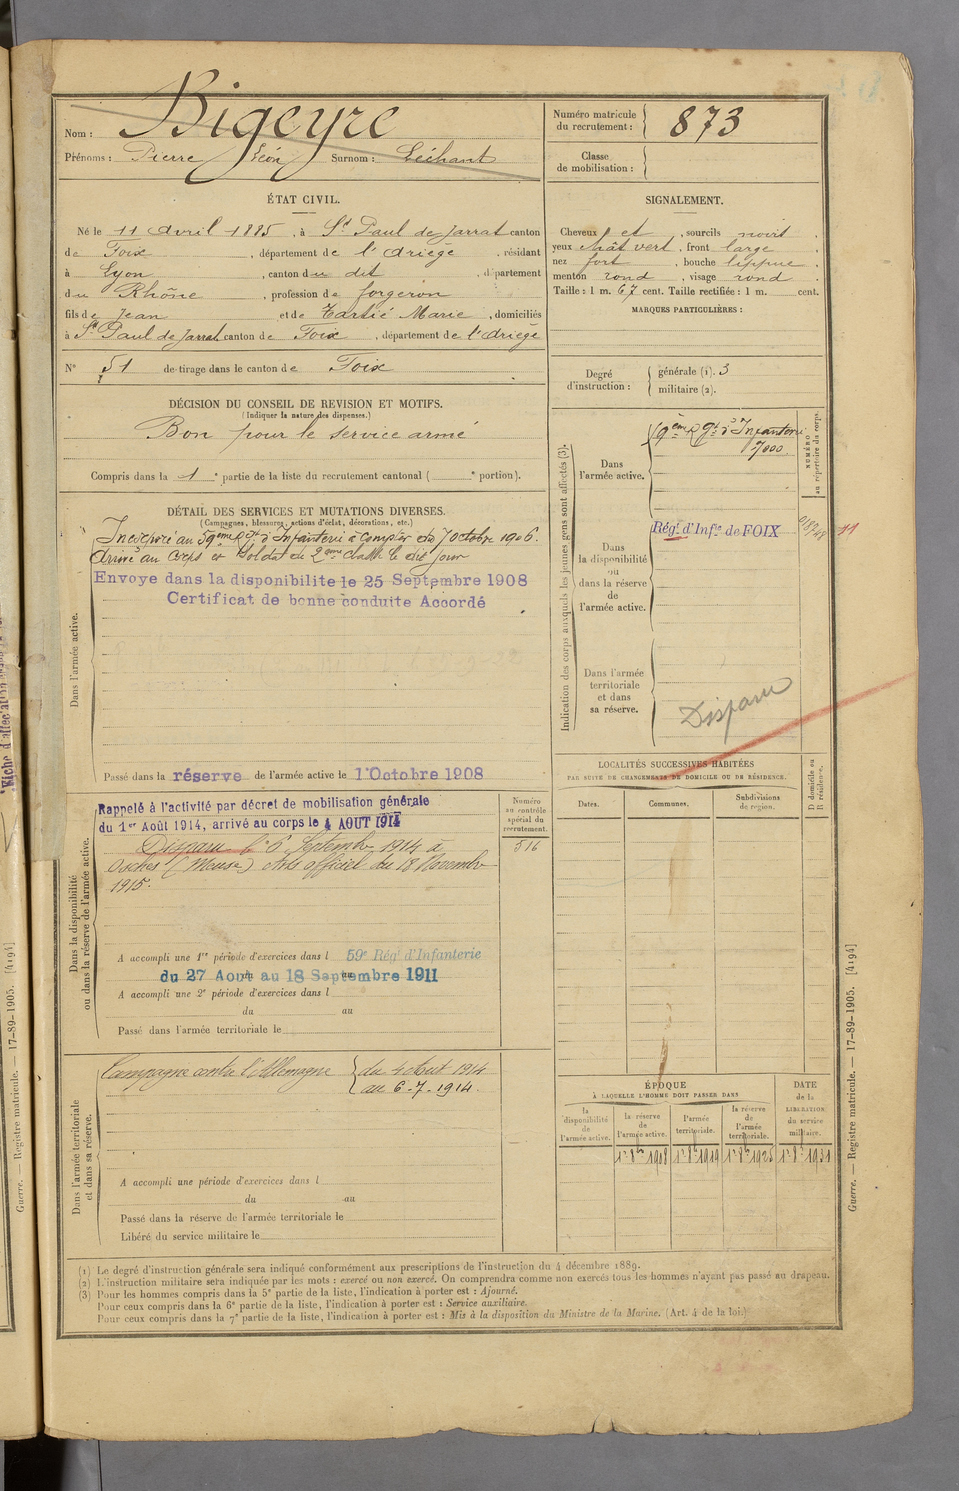 Nom : Bigeyre
Prénoms : Pierre Léon Surnom : Léchant
Numéro matricule
du recrutement : 873
Classe
de mobilisation :
ÉTAT CIVIL.
Né le 11 Avril 1885, à St Paul de Jarrat canton
de Foix, département de l'Ariège, résidant
à Lyon, canton du dit, département
du Rhône, profession de forgeron
fils de Jean et de Tartié Marie, domiciliés
à St Paul de Jarrat canton de Foix, département de l'Ariège
N° 51 de tirage dans le canton de Foix
SIGNALEMENT.
Cheveux et, sourcils noirs,
yeux chât vert, front large
nez fort, bouche lippue,
menton rond, visage rond
Taille : 1 m. 67 cent. Taille rectifiée : 1 m. cent.
MARQUES PARTICULIÈRES :
Degré
d'instruction :
générale (1). 3
militaire (2).
DÉCISION DU CONSEIL DE REVISION ET MOTIFS.
(Indiquer la nature des dispenses.)
Bon pour le service armé
Compris dans la 1e partie de la liste du recrutement cantonal ( e portion).
DÉTAIL DES SERVICES ET MUTATIONS DIVERSES.
(Campagnes, blessures, actions d'éclat, décorations, etc.)
Dans l'armée active.
Incorporé au 59ème Rgt d'Infanterie à compter du 7 octobre 1906.
Arrivé au corps et soldat de 2ème classe le dit jour
Envoye dans la disponibilite le 25 Septembre 1908
Certificat de bonne conduite Accordé
Passé dans la réserve de l'armée active le 1er Octobre 1908
Indication des corps auxquels les jeunes gens sont affectés (3).
NUMÉRO
au répertoire du corps.
Dans
l'armée active.
59ème Rgt d'Infanterie
7000
Dans
la disponibilité
ou
dans la réserve
de
l'armée active.
Régt d'Infie de FOIX
11
Dans l'armée
territoriale
et dans
sa réserve.
Disparu
LOCALITÉS SUCCESSIVES HABITÉES
PAR SUITE DE CHANGEMENTS DE DOMICILE OU DE RÉSIDENCE.
Dates.
Communes.
Subdivisions
de région.
D domicile ou
R résidence.
Dans la disponibilité
ou dans la réserve de l'armée active.
Numéro
au contrôle
spécial du
recrutement.
516
Rappelé à l'activité par décret de mobilisation générale
du 1er Août 1914, arrivé au corps le 4 AOUT 1914
Disparu le 6 Septembre 1914 à
Osches (Meuse) Avis officiel du 18 Novembre
1915.
A accompli une 1re période d'exercices dans l 59e Rég. d'Infanterie
du 27 Août au 18 Septembre 1911
A accompli une 2e période d'exercices dans l
du au
Passé dans l'armée territoriale le
Dans l'armée territoriale
et dans sa réserve.
Campagne contre l'Allemagne du 4 Aout 1914
au 6-7-1914.
A accompli une période d'exercices dans l
du au
Passé dans la réserve de l'armée territoriale le
Libéré du service militaire le
ÉPOQUE
À LAQUELLE L'HOMME DOIT PASSER DANS
DATE
de la
LIBÉRATION
du service
militaire.
la
disponibilité
de
l'armée active.
la réserve
de
l'armée active.
l'armée
territoriale.
la réserve
de
l'armée
territoriale.
1er 8bre 1908 1er 8bre 1919 1er 8bre 1925 1er 8bre 1931
(1) Le degré d'instruction générale sera indiqué conformément aux prescriptions de l'instruction du 4 décembre 1889.
(2) L'instruction militaire sera indiquée par les mots : exercé ou non exercé. On comprendra comme non exercés tous les hommes n'ayant pas passé au drapeau.
(3) Pour les hommes compris dans la 5e partie de la liste, l'indication à porter est : Ajourné.
Pour ceux compris dans la 6e partie de la liste, l'indication à porter est : Service auxiliaire.
Pour ceux compris dans la 7e partie de la liste, l'indication à porter est : Mis à la disposition du Ministre de la Marine. (Art. 4 de la loi.)
Guerre. — Registre matricule. — 17-89-1905. [4194]
Guerre. — Registre matricule. — 17-89-1905. [4194]